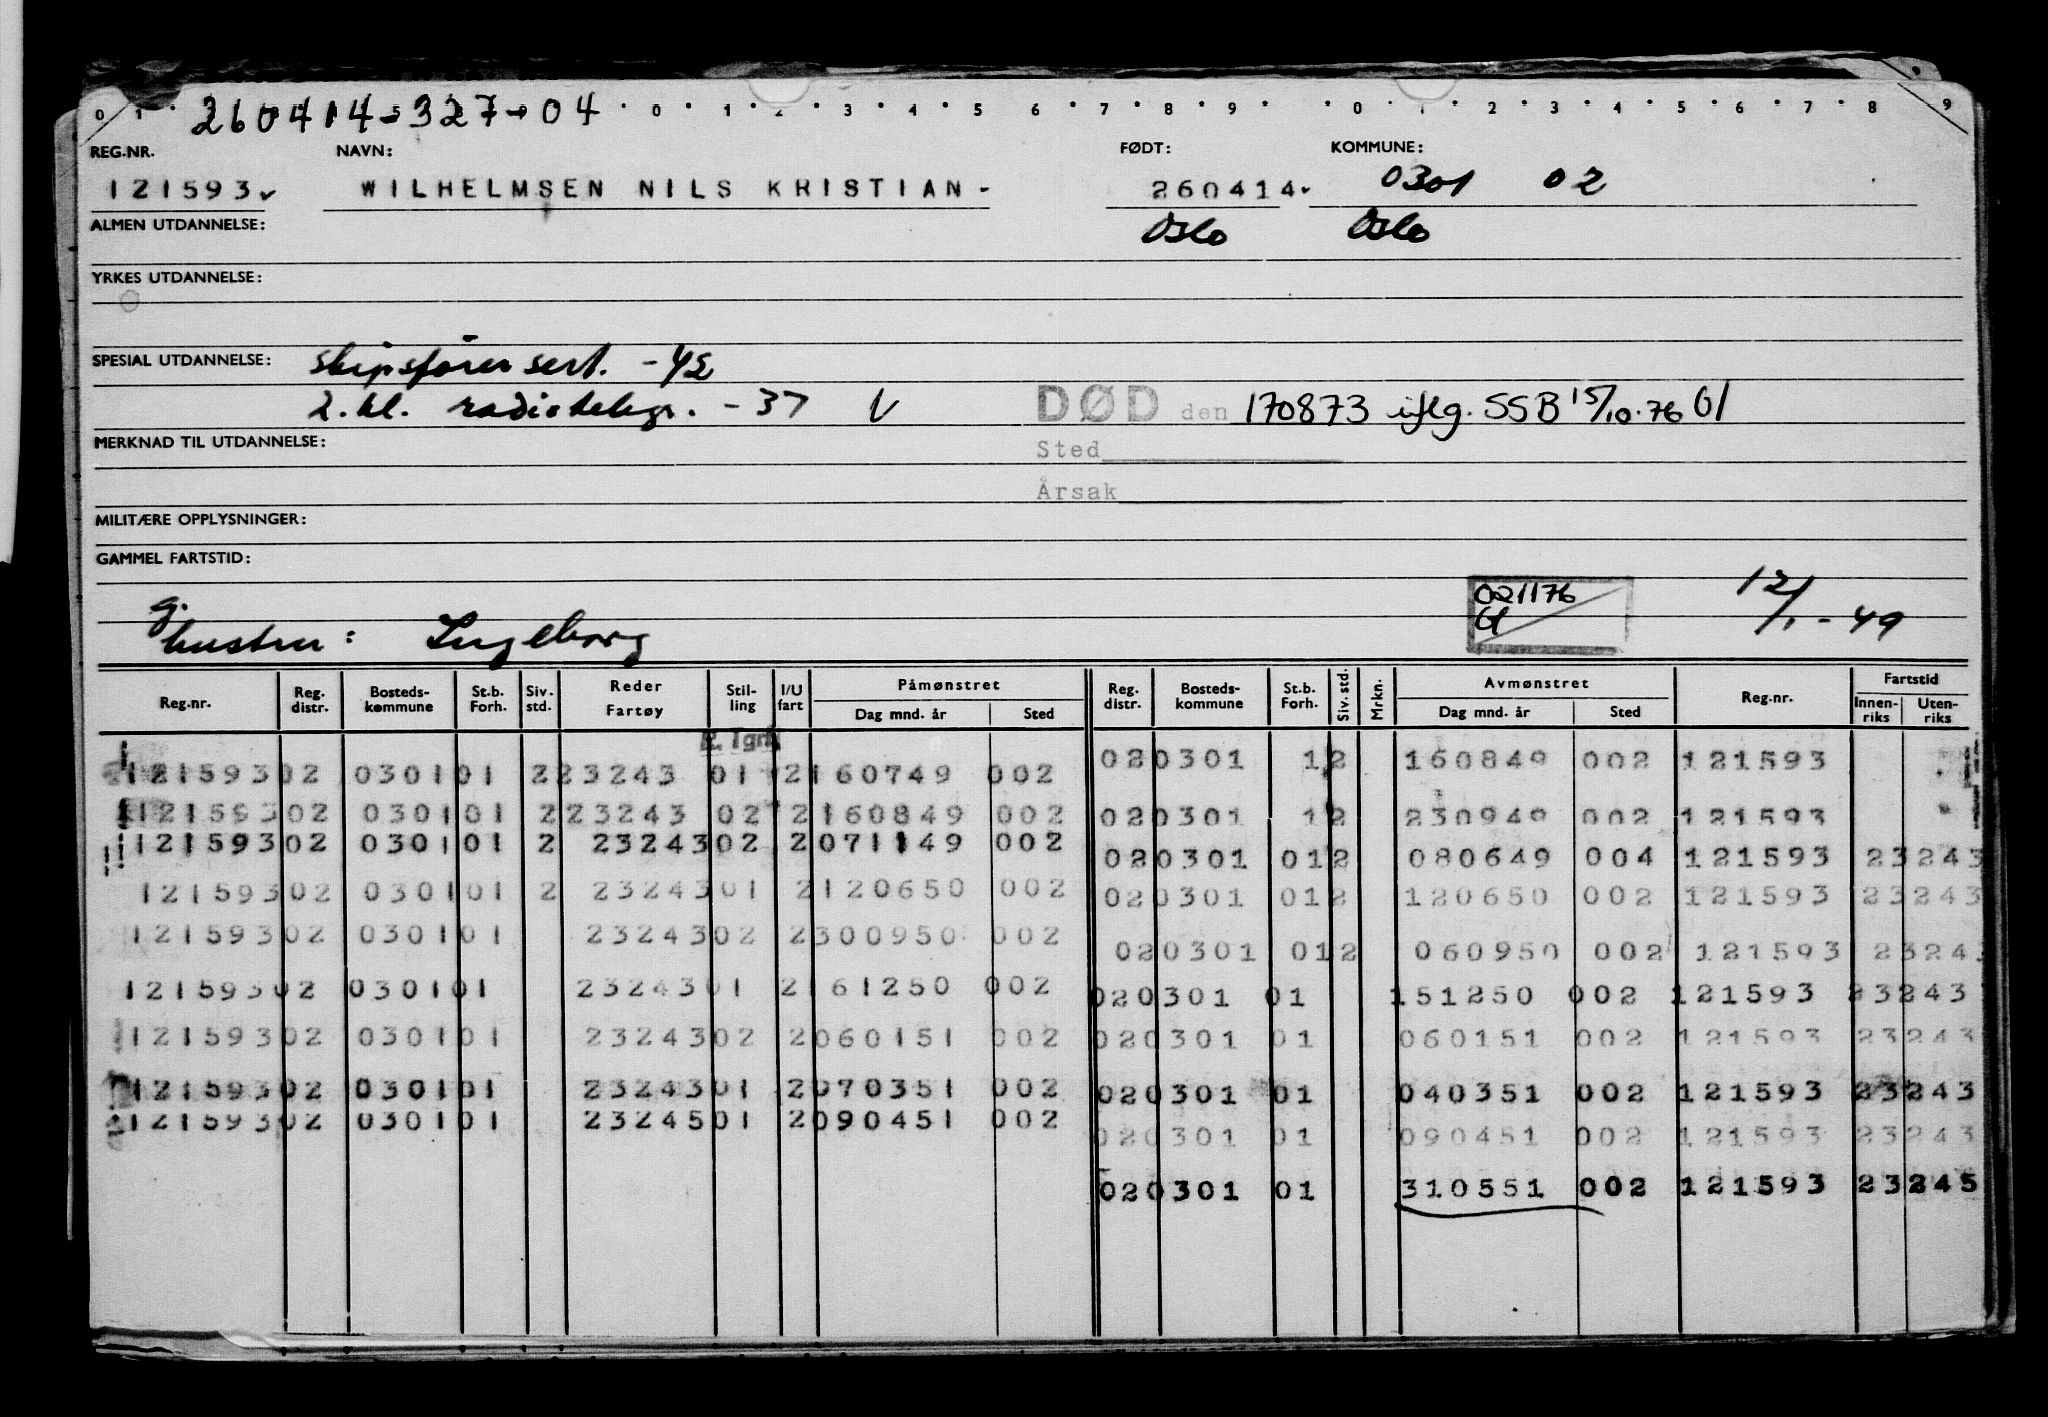 0 1 260414-327-04 0 1 2 3 4 5 6 7 8 9 0 1 2 3 4 5 6 7 8 9
REG.NR. NAVN: FØDT: KOMMUNE:
121593 WILHELMSEN NILS KRISTIAN- 260414 0301 02
ALMEN UTDANNELSE: Oslo Oslo
YRKES UTDANNELSE:
SPESIAL UTDANNELSE: skipsfører sert. -42
2. kl. radiotelegr. -37 V DØD den 170873 iflg. SSB 15/10.76 Gl
MERKNAD TIL UTDANNELSE:
Sted
Årsak
MILITÆRE OPPLYSNINGER:
GAMMEL FARTSTID:
021176 12/1-49
Gl
g.
hustru: Ingeborg
Reg.nr. Reg. distr. Bosteds-kommune St.b. Forh. Siv. std. Reder Fartøy Stil-ling I/U fart Påmønstret Dag mnd. år Sted Reg. distr. Bosteds-kommune St.b. Forh. Siv. std. Mrkn. Avmønstret Dag mnd. år Sted Reg.nr. Fartstid Innen-riks Uten-riks
12159302 030101 223243 01 2160749 002 020301 12 160849 002 121593
12159302 030101 223243 02 2160849 002 020301 12 230949 002 121593
12159302 030101 2 2324302 2071149 002 020301 012 080649 004 121593 23243
12159302 030101 2 2324301 2120650 002 020301 012 120650 002 121593 23243
12159302 030101 2324302 2300950 002 020301 012 060950 002 121593 23243
12159302 030101 2324301 2161250 002 020301 01 151250 002 121593 23243
12159302 030101 2324302 2060151 002 020301 01 060151 002 121593 23243
12159302 030101 2324301 2070351 002 020301 01 040351 002 121593 23243
12159302 030101 2324501 2090451 002 020301 01 090451 002 121593 23243
020301 01 310551 002 121593 23245